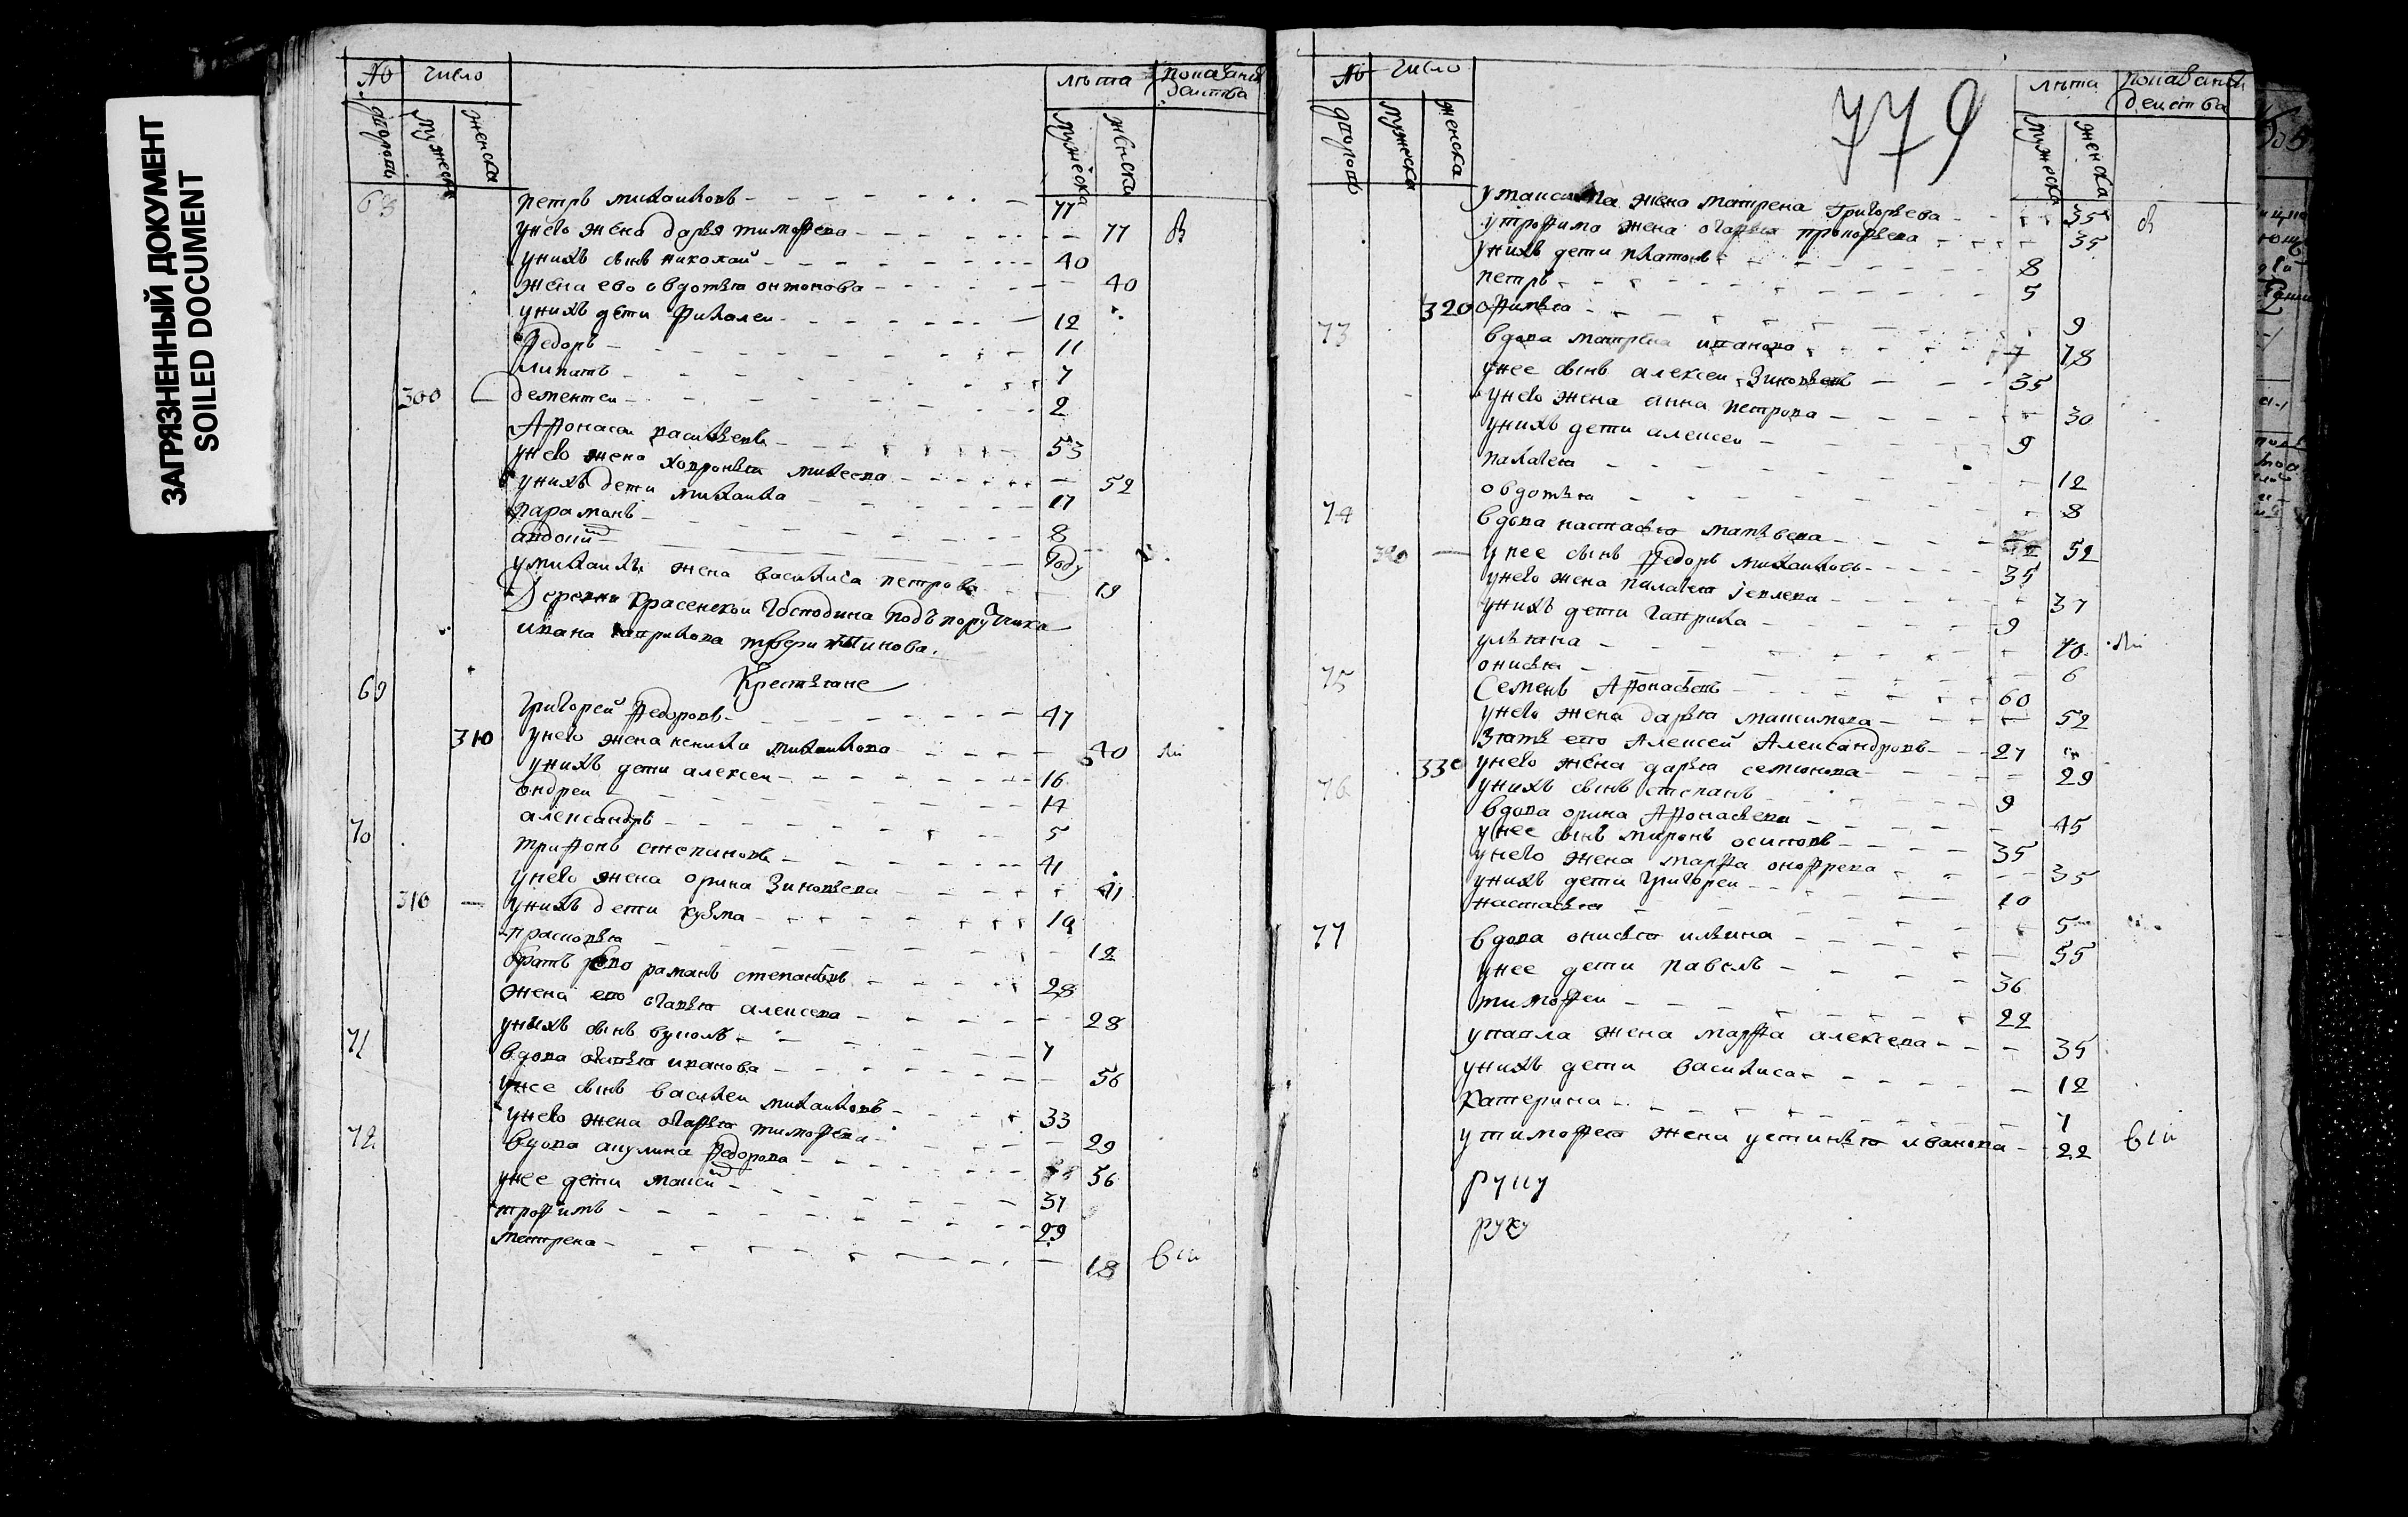 ЗАГРЯЗНЕННЫЙ ДОКУМЕНТ
SOILED DOCUMENT
№ число лѣта
мужеска женска мужеска женска
68 петръ михаиловъ 77
унего жена дарья тимофеева 77
унихъ сынъ николай 40
жена ево овдотья онтонова 40
унихъ дети филатеи 12
Федоръ 11
липатъ 7
300 дементеи 2
Афонасеи васильевъ 53
унего жена ховронья михеева 52
унихъ дети михаила 17
парамонъ 8
авдоки году
умихаилы жена василиса петрова 19
Деревни Красенкои Господина подъпорутчика
ивана гаврилова твери тинова
Крестьяне
69 Григорей Федоровъ 47
310 унего жена михаилова 40
унихъ дети алексеи 16
ондреи 14
александръ 5
70 трифонъ степановъ 41
унего жена орина Зиновьева 41
310 унихъ дети кузма 19
прасковья 12
братъ ево раманъ степановъ 28
жена ево агафья алексеева 28
унихъ сынъ вуколъ 7
71 вдова иванова 56
унее сынъ василеи михаиловъ 33
унего жена агафья тимофеева 29
72 вдова акулина Федорова 56
унее дети 37
трофимъ 29
матрена 18
779
№ число лѣта
мужеска женска мужеска женска
жена матрена Григорьева 35
утрофима жена агафья прокофьева 35
унихъ дети платонъ 8
петръ 5
320 офимья 9
73 вдова матрена иванова 78
унее сынъ алексеи Зиновьевъ 35
унего жена анна петрова 30
унихъ дети алексеи 9
палагея 12
овдотья 8
74 вдова настасья матвеева 52
320 унее сынъ Федоръ михаиловъ 35
унего жена палагея 37
унихъ дети гаврила 9
ульяна 10
онисья 6
75 Семенъ Афонасьевъ 60
унего жена дарья максимова 52
Зять ево Алексей Александровъ 27
330 унего жена дарья семионова 29
унихъ сынъ степанъ 9
76 вдова орина Афонасьева 45
унее сынъ миронъ осиповъ 35
унего жена марфа онофрева 35
унихъ дети григореи 10
настасья 5
77 вдова онисья ильина 55
унее дети павелъ 36
тимофеи 22
упавла жена марфа алексеева 35
унихъ дети василиса 12
катерина 7
утимофея жена устинья иванова 22
руку